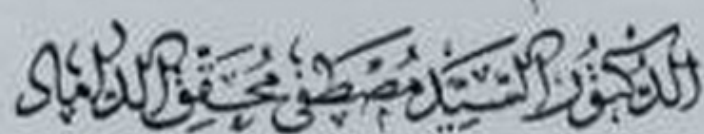 الدكتور السيد مصطفى محقق الداماد